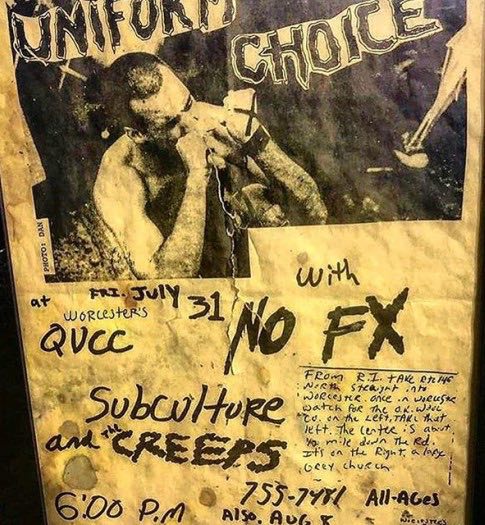 UNIFORM
CHOICE
PHOTO: DAN
with
at FRI. JULY 31
WORCESTER'S
QVCC
NO FX
FROM R.I. TAKE Rte 146
North straight into
Worcester. once in worcester
watch for the O.K. Wool
Co. on the Left, TAKE that
left. The center is about
1/2 mile down the Rd.
Its on the Right, a large
Grey church
Subculture
and the CREEPS
6:00 P.M
755-7481 All-Ages
Also. AUG 8